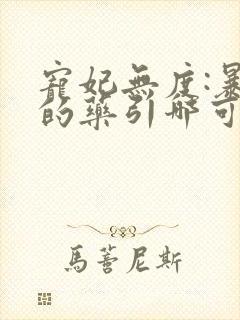 寵妃無度:暴
的藥引哪可
馬萱尼斯